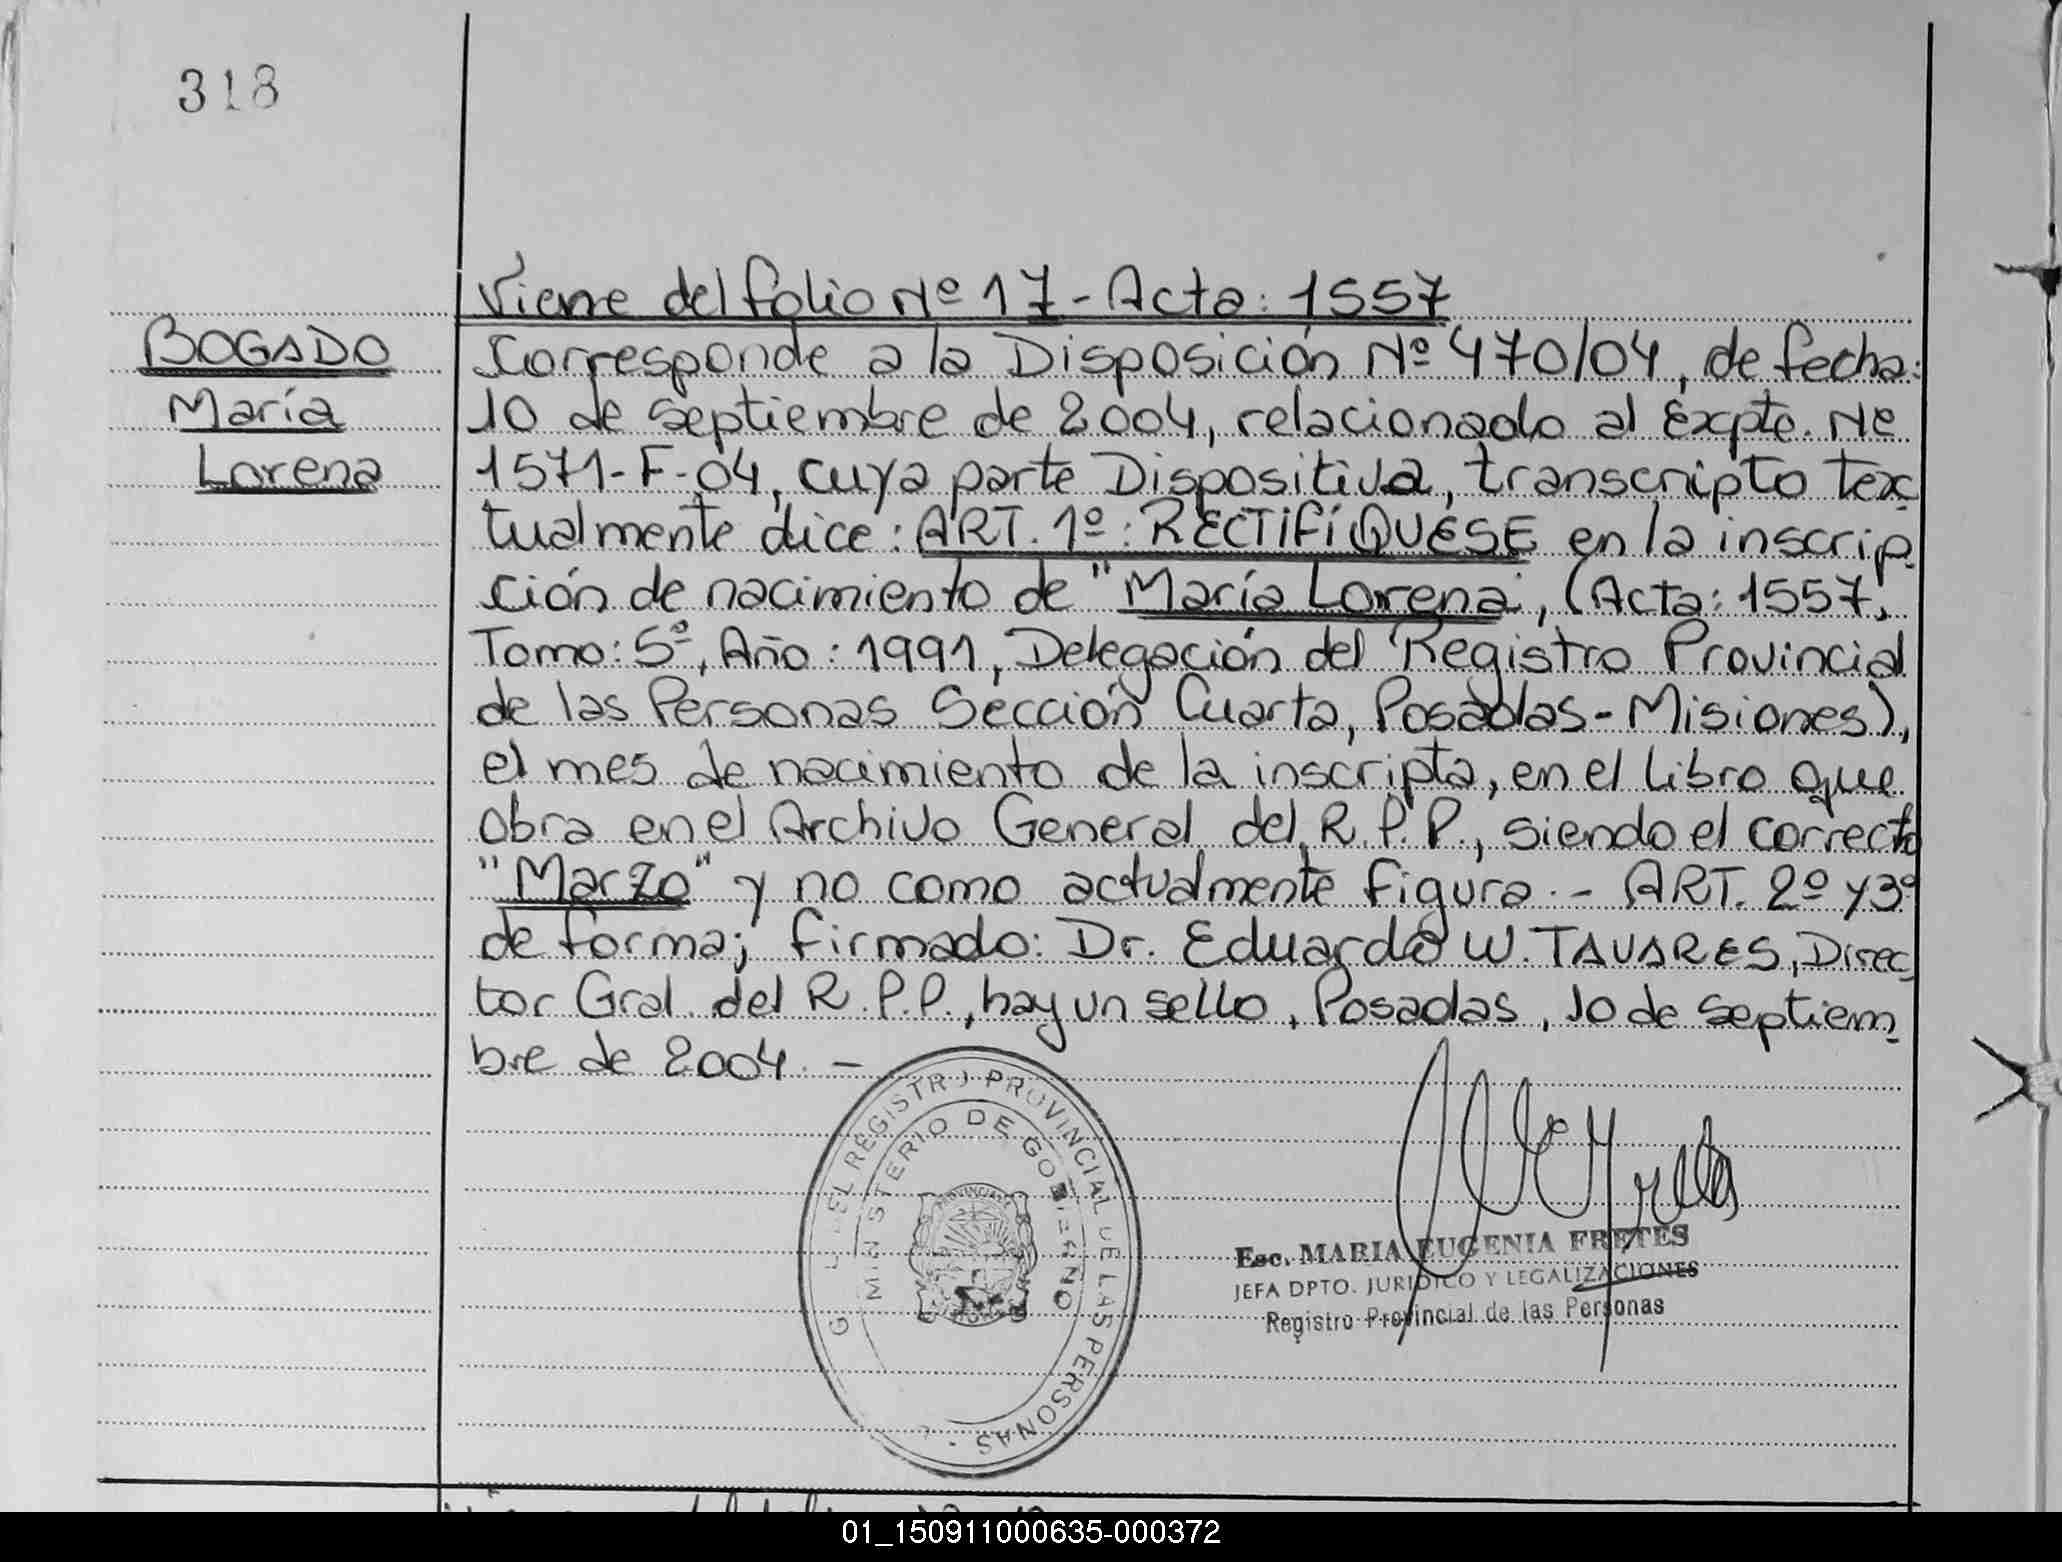 318
Viene del folio Nº 17 - Acta: 1557
BOGADO
María
Lorena
Corresponde a la Disposición Nº 470/04, de fecha:
10 de septiembre de 2004, relacionado al Expte. Nº
1571-F-04, cuya parte Dispositiva, transcripto tex
tualmente dice: ART. 1º: RECTIFÍQUESE en la inscrip-
ción de nacimiento de "María Lorena", (Acta: 1557,
Tomo: 5º, Año: 1991, Delegación del Registro Provincial
de las Personas Sección Cuarta, Posadas - Misiones),
el mes de nacimiento de la inscripta, en el Libro que
obra en el Archivo General del R.P.P., siendo el correcto
"Marzo" y no como actualmente figura.- ART. 2º y 3º
de forma; firmado: Dr. Eduardo W. TAVARES, Direc
tor Gral. del R.P.P., hay un sello, Posadas, 10 de septiem
bre de 2004. -
EL REGISTRO PROVINCIAL DE LAS PERSONAS
MINISTERIO DE GOBIERNO
Esc. MARIA EUGENIA FRETES
JEFA DPTO. JURIDICO Y LEGALIZACIONES
Registro Provincial de las Personas
01_150911000635-000372